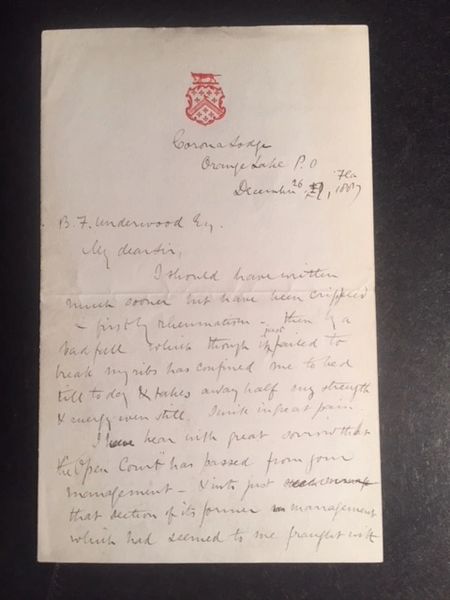 Corona Lodge
Orange Lake P.O
Fla
December 26, 1887
B. F. Underwood Esq.
My dear Sir,
I should have written
much sooner but have been crippled
– first by rheumatism – then by a
bad fall which though it just failed to
break my ribs has confined me to bed
till to day & takes away half my strength
& energy even still. I write in great pain.
I hear with great sorrow that
the "Open Court" has passed from your
management – & into just
that section of its former management
which had seemed to me fraught with